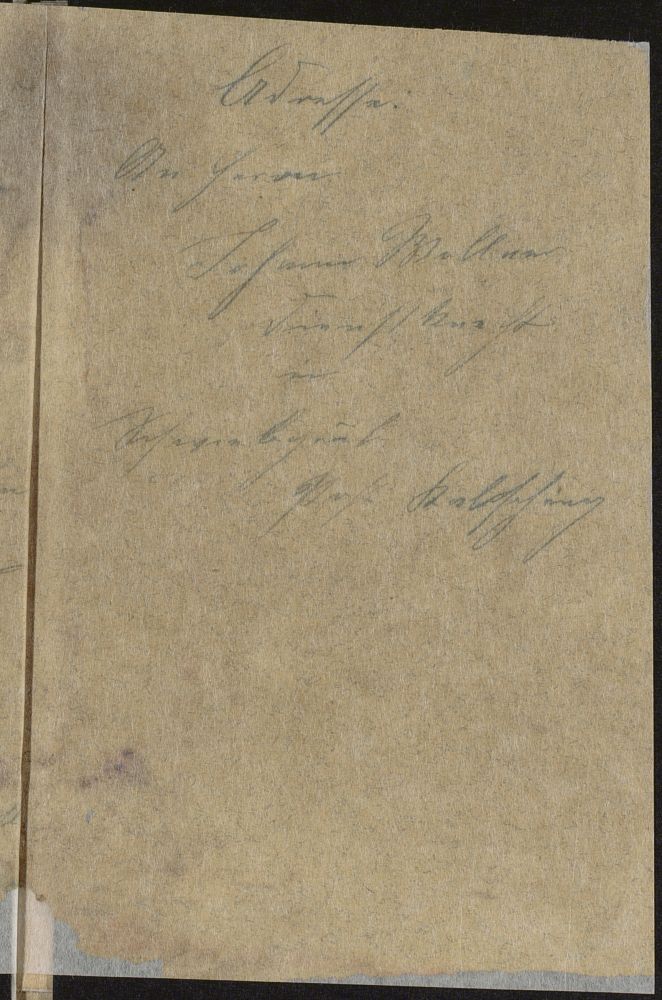 Adresse:
An Herrn
Johann Wellner
Dienstknecht
in
Post Kalsching